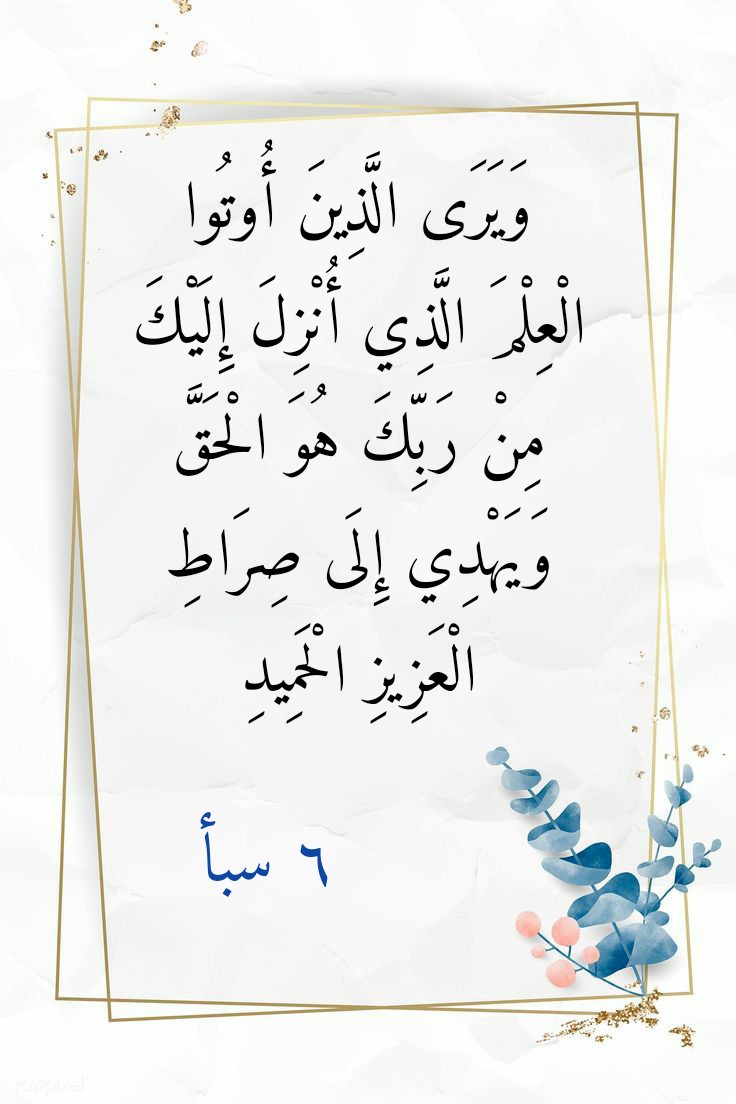 وَيَرَى الَّذِينَ أُوتُوا
الْعِلْمَ الَّذِي أُنْزِلَ إِلَيْكَ
مِنْ رَبِّكَ هُوَ الْحَقَّ
وَيَهْدِي إِلَى صِرَاطِ
الْعَزِيزِ الْحَمِيدِ
٦ سبأ
rawpixel